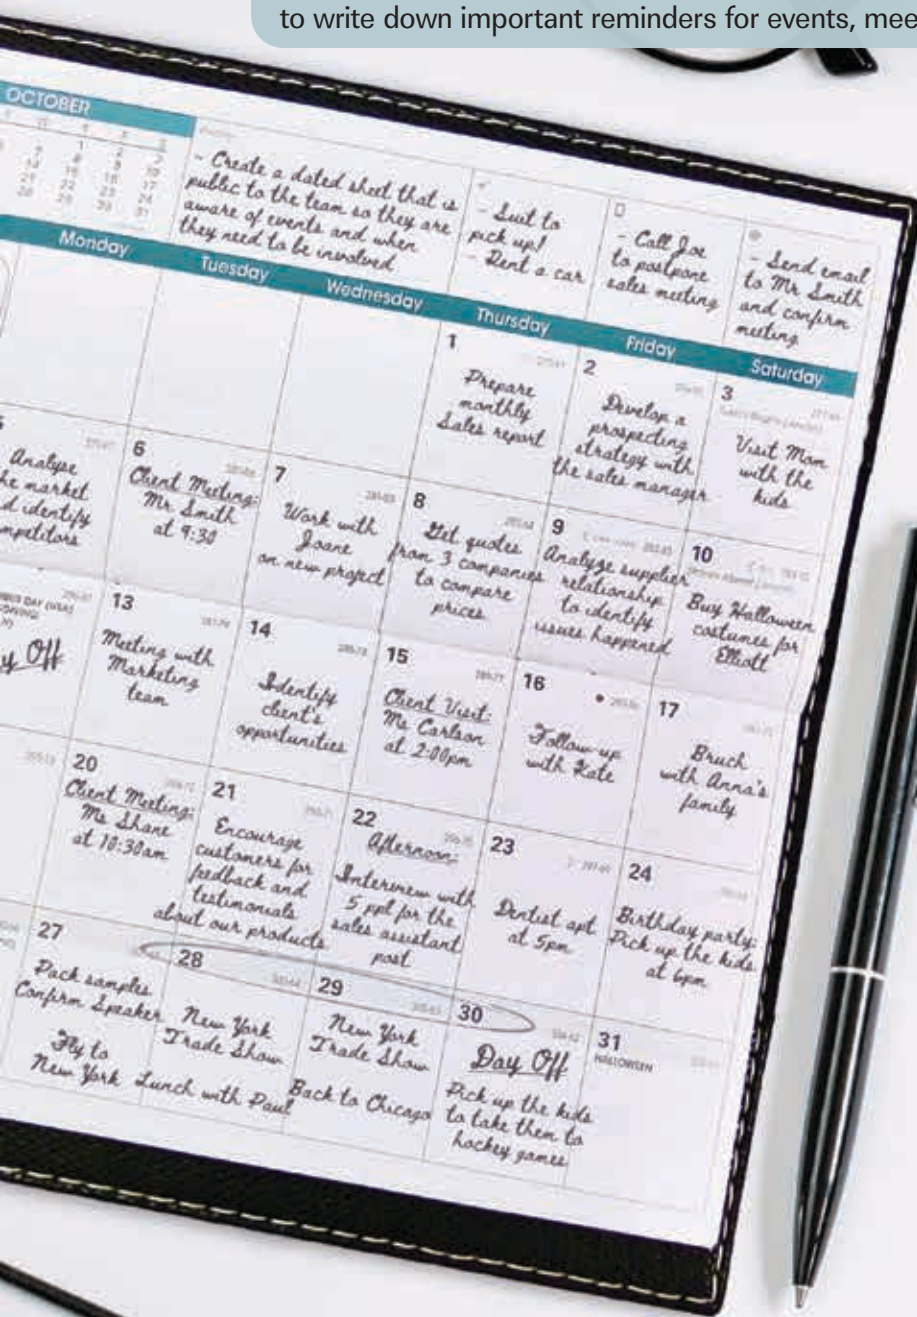 to write down important reminders for events, mee
OCTOBER
- Create a dated sheet that is
public to the team so they are
aware of events and when
they need to be involved
- Suit to
pick up!
- Rent a car
- Call Joe
to postpone
sales meeting
- Send email
to Mr Smith
and confirm
meeting
Monday
Tuesday
Wednesday
Thursday
Friday
Saturday
1
Prepare
monthly
Sales report
2
Develop a
prospecting
strategy with
the sales manager
3
Visit Mom
with the
kids
5
Analyse
he market
d identify
mpetitors
6
Client Meeting:
Mr Smith
at 9:30
7
Work with
Joane
on new project
8
Get quotes
from 3 companies
to compare
prices
9
Analyze supplier
relationship
to identify
issues happened
10
Buy Halloween
costumes for
Elliott
BUS DAY (USA)
y Off
13
Meeting with
Marketing
team
14
Identify
client's
opportunities
15
Client Visit:
Ms Carlson
at 2:00pm
16
Follow-up
with Kate
17
Bruch
with Anna's
family
20
Client Meeting:
Ms Shane
at 10:30am
21
Encourage
customers for
fedback and
testimonials
about our products
22
Afternoon:
Interview with
5 ppl for the
sales assistant
post
23
Dentist apt
at 5pm
24
Birthday party:
Pick up the kids
at 6pm
27
Pack samples
Confirm Speaker
Fly to
New York
28
New York
Trade Show
Lunch with Paul
29
New York
Trade Show
Back to Chicago
30
Day Off
Pick up the kids
to take them to
hockey games
31
HALLOWEEN